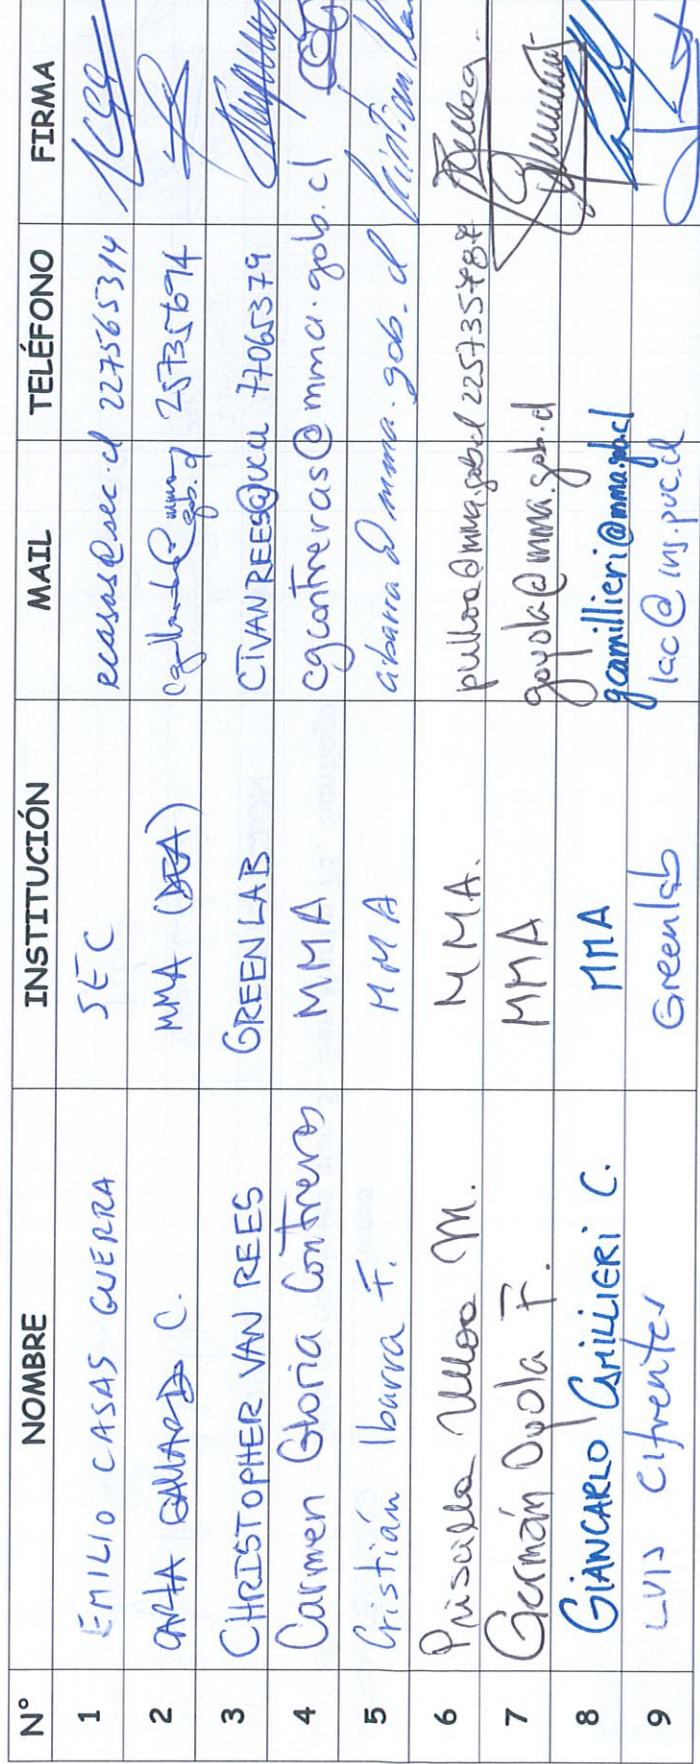 N° NOMBRE INSTITUCIÓN MAIL TELÉFONO FIRMA
1 EMILIO CASAS GUERRA SEC ecasas@sec.cl 227565314
2 CARLA GALLARDO C. MMA (DEA) 25735694
3 CHRISTOPHER VAN REES GREENLAB CIVANREES@uc.cl 77065379
4 Carmen Gloria Contreras MMA cgcontreras@mma.gob.cl
5 Cristián Ibarra F. MMA cibarra@mma.gob.cl
6 Priscilla Ulloa M. MMA. pulloa@mma.gob.cl 225735787
7 Germán Oyola F. MMA goyola@mma.gob.cl
8 GIANCARLO CAMILLIERI C. MMA gcamillieri@mma.gob.cl
9 LUIS Cifuentes Greenlab lac@ing.puc.cl